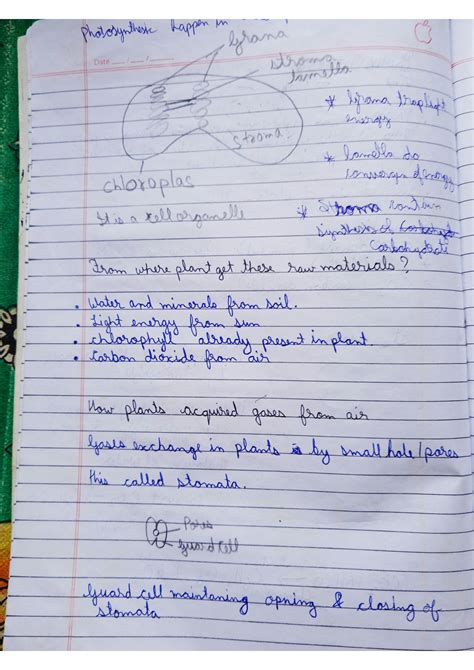 photosynthesic happen in
Grana
Date ___/___/___
stroma
lamella
* Grana trap light
energy
stroma
* lamella do
converge of energy
chloroplas
* Stroma contain
It is a cell organelle
synthesis of
Carbohydrate
From where plant get these raw materials?
• Water and minerals from soil.
• Light energy from sun
• chlorophyll already present in plant
• Carbon dioxide from air
How plants acquired gases from air
Gases exchange in plants is by small hole/pores
this called stomata.
Pores
Guard cell
Guard cell maintaning opning & closing of
stomata